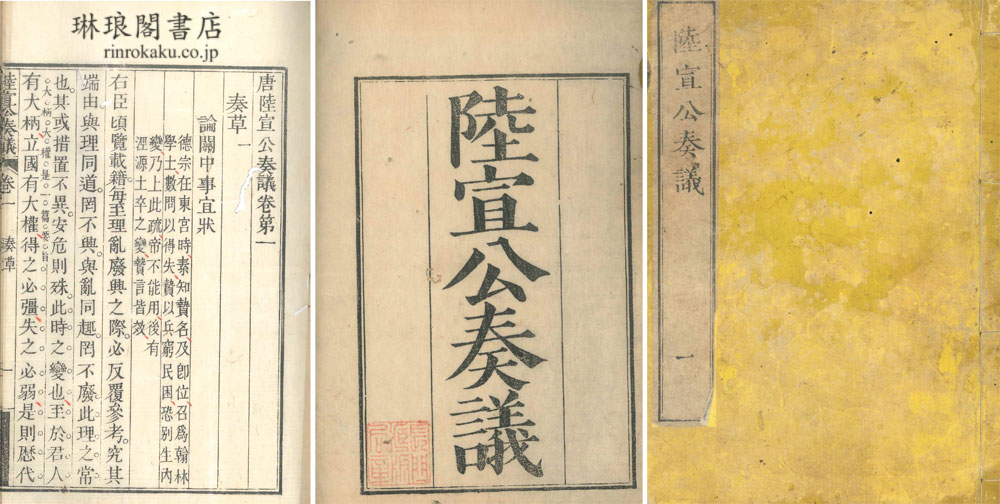 琳琅閣書店
rinrokaku.co.jp
唐陸宣公奏議卷第一
奏草一
論關中事宜狀
德宗在東宮時素知贄名及卽位召爲翰林
學士數問以得失贄以兵窮民困恐別生內
變乃上此疏帝不能用後有
涇源士卒之變贄言皆效
右臣頃覽載籍每至理亂廢興之際必反覆參考究其
端由與理同道罔不興與亂同趣罔不廢此理之常
也其或措置不異安危則殊此時之變也至於君人
大柄大權是一篇要旨
有大柄立國有大權得之必彊失之必弱是則歷代
陸宣公奏議 卷一 奏草 一
陸宣公奏議
陸宣公奏議 一